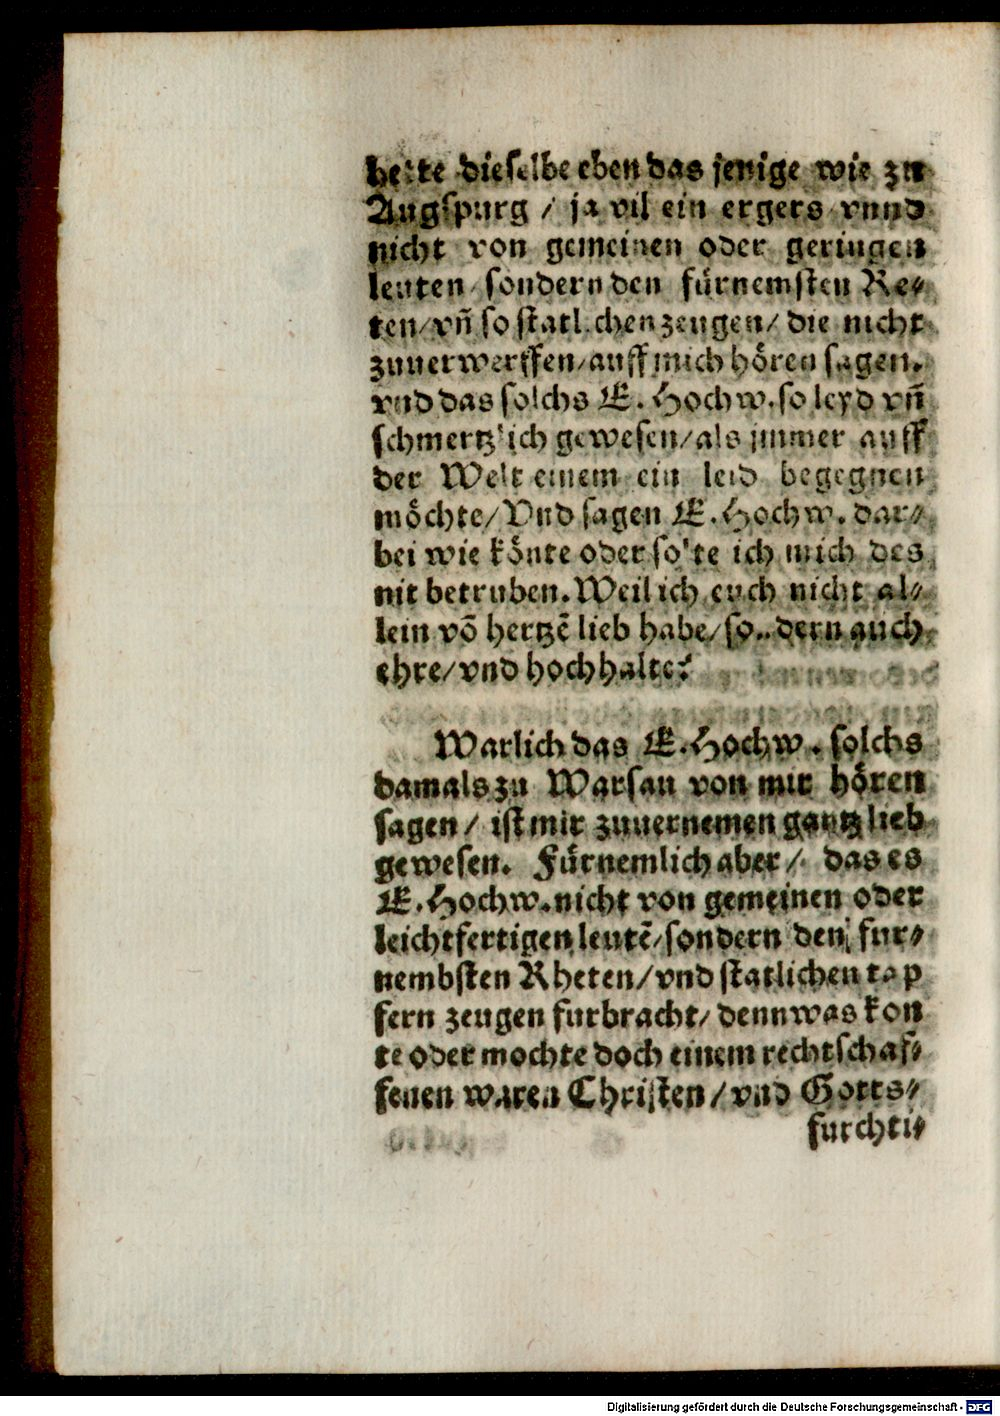 hette dieselbe eben das jenige wie zu
Augspurg / ja vil ein ergers vnnd
nicht von gemeinen oder geringen
leuten / sondern den fürnemsten Re⸗
ten / vñ so statlichen zeugen / die nicht
zuuerwerffen / auff mich hören sagen.
vnd das solchs E. Hochw. so leyd vñ
schmertzlich gewesen / als jmmer auff
der Welt einem ein leid begegnen
möchte / Vnd sagen E. Hochw. dar⸗
bei wie könte oder solte ich mich des
nit betruben. Weil ich euch nicht al⸗
lein võ hertzẽ lieb habe / sondern auch
ehre / vnd hochhalte?
Warlich das E. Hochw. solchs
damals zu Warsau von mir hören
sagen / ist mir zuuernemen gantz lieb
gewesen. Fürnemlich aber / das es
E. Hochw. nicht von gemeinen oder
leichtfertigen leutẽ / sondern den fur⸗
nembsten Rheten / vnd statlichen tap
fern zeugen furbracht / denn was kon
te oder mochte doch einem rechtschaf⸗
fenen waren Christen / vnd Gotts⸗
furchti⸗
Digitalisierung gefördert durch die Deutsche Forschungsgemeinschaft - DFG